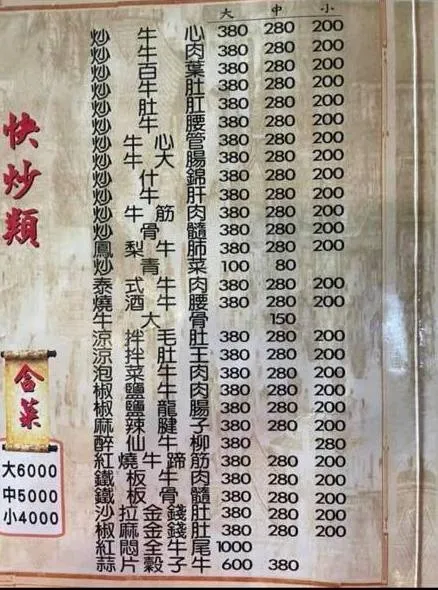 快炒類
大 中 小
炒牛心 380 280 200
炒牛肉 380 280 200
炒百葉 380 280 200
炒牛肚 380 280 200
炒肚肛 380 280 200
炒牛腰 380 280 200
炒牛心管 380 280 200
炒牛大腸 380 280 200
炒什錦 380 280 200
炒牛肝 380 280 200
炒牛筋肉 380 280 200
炒骨髓 380 280 200
鳳梨牛肺 380 280 200
炒青菜 100 80
泰式牛肉 380 280 200
燒酒牛腰 380 280 200
牛大骨 150
涼拌毛肚 380 280 200
涼拌肚王 380 280 200
泡菜牛肉 380 280 200
椒鹽牛肉 380 280 200
椒鹽龍腸 380 280 200
麻辣腱子 380 280 200
醉仙牛柳 380 280
紅燒牛蹄筋 380 280 200
鐵板牛肉 380 280 200
鐵板骨髓 380 280 200
沙拉金錢肚 380 280 200
椒麻金錢肚 380 280 200
紅悶全牛尾 1000
蒜片穀子牛 600 380
合菜
大6000
中5000
小4000